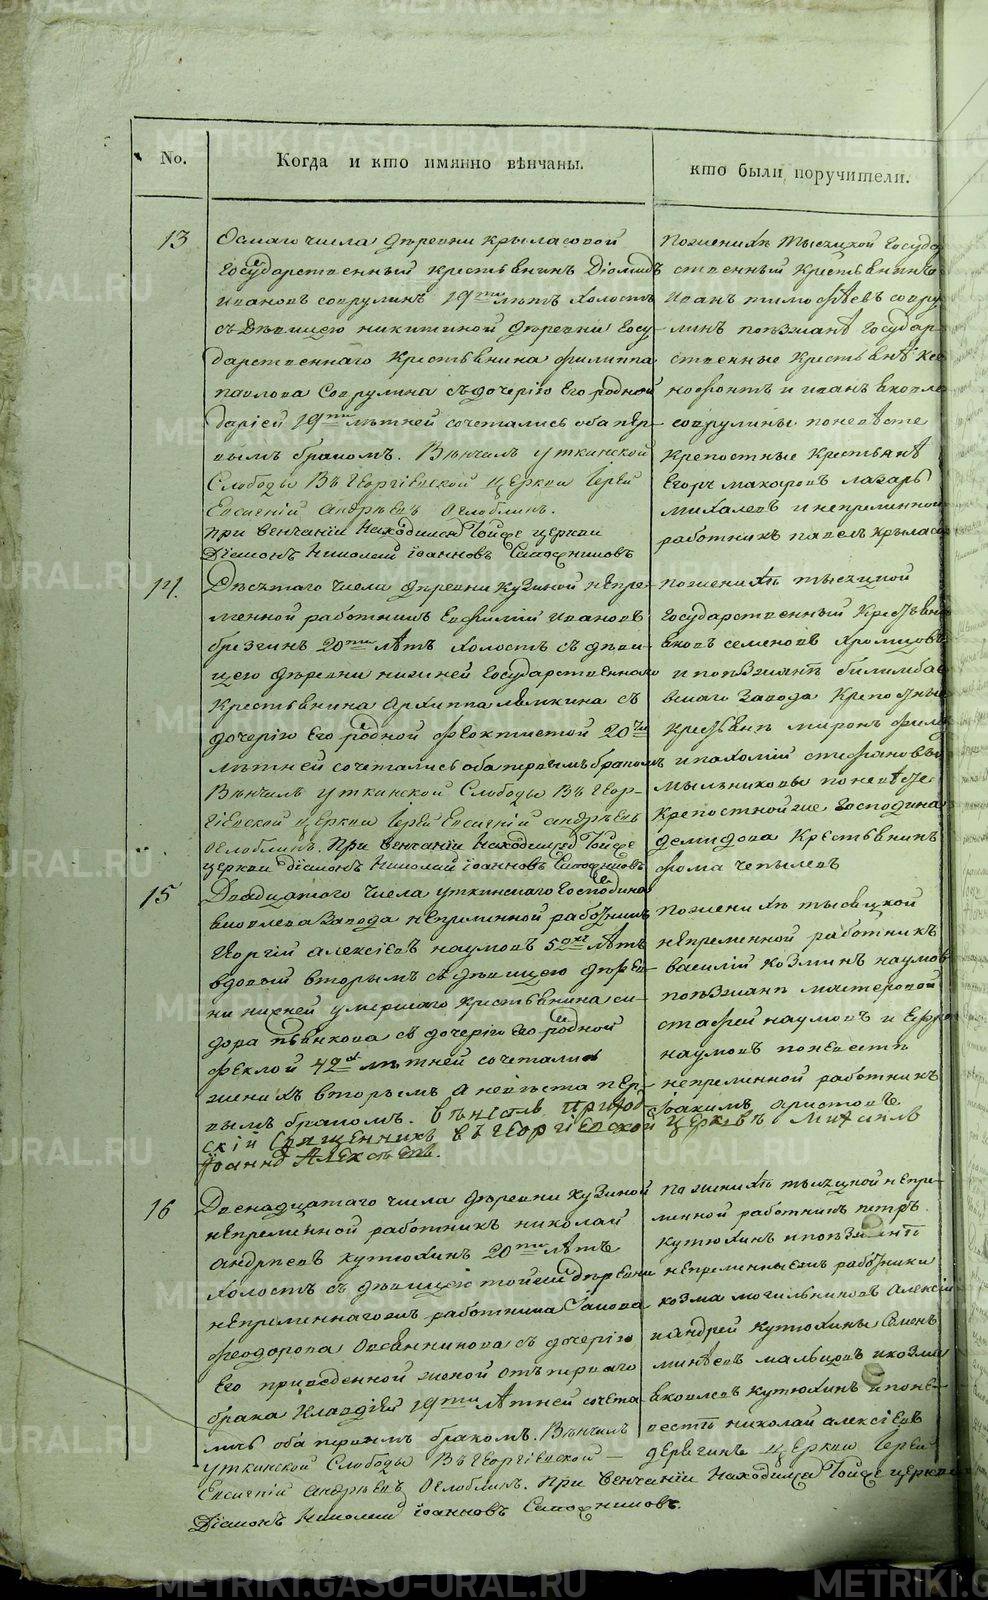 No.
Когда и кто имянно вѣнчаны.
кто были поручители.
13
Осмаго числа деревни Крыласовой
Государственный крестьянинъ Діомидъ
Ивановъ Соврулинъ 19ти лѣтъ холостъ
съ дѣвицею Никитиной деревни Госу-
дарственнаго крестьянина Филиппа
Павлова Соврулина съ дочерію его родной
Дарiей 19ти лѣтней сочетались оба пер-
вымъ бракомъ. Вѣнчалъ Уткинской
Слободы Въ Георгіевской церкви Іерей
Евсигній Андрѣевъ Оглоблинъ.
При венчаніи находился тойже церкви
Діаконъ Николай Іоанновъ Сапожниковъ
По женихѣ тысяцкой Госуда
ственный крестьянинъ
Иванъ Тимофѣевъ Совру
линъ поѣзжанѣ Государ-
ственные крестьянѣ
и Иванъ Яковле
Соврулины по невѣсте
крепостные крестьянѣ
Егоръ Макаровъ Лазарь
Михалевъ и непременной
работникъ Павелъ Крыласо
14.
Десятаго числа деревни Кузиной непре-
менной работникъ Евфимій Ивановъ
20ти лѣтъ холостъ съ дѣви-
цею деревни Нижней Государственнаго
крестьянина Архиппа съ
дочерію его родной Феоктистой 20ти
лѣтней сочетались оба первымъ бракомъ
Вѣнчалъ Уткинской Слободы Въ Геор-
гіевской церкви Іерей Евсигній Андрѣевъ
Оглоблинъ. При венчаніи находился тойже
церкви Діаконъ Николай Іоанновъ Сапожниковъ
По женихѣ тысяцкой
Государственный крестьянин
Яковъ Семеновъ Хромцовъ
и поѣзжанѣ Билимбае
вскаго завода крепостные
крестьянѣ Миронъ
и Пахомій Стефановы
Мыльниковы по невѣсте
крепостной же господина
Демидова крестьянинъ
Фома Чепылевъ
15
Двадцатаго числа Уткинскаго Господина
Яковлева завода непременной работникъ
Георгій Алексіевъ Наумовъ лѣтъ
вдовый вторымъ съ дѣвицею дерев-
ни Нижней умершаго крестьянина Си-
дора Пѣнкова съ дочерію его родной
Феклой лѣтней сочетались
женихъ вторымъ а невѣста пер-
вымъ бракомъ. Вѣнчалъ приход-
скій Священникъ въ Георгіевской церквѣ Михаилъ
Іоанно Алексѣевъ.
По женихѣ тысяцкой
непременной работникъ
Василій Козминъ Наумовъ
поѣзжанѣ мастеровой
Наумовъ и
Наумовъ по невестѣ
непременной работникъ
Іоакимъ Аристовъ
16
Двенадцатаго числа деревни Кузиной
непременной работникъ Николай
Андрѣевъ Кутюхинъ 20ти лѣтъ
холостъ съ дѣвицею тойже деревни
непременнаго работника Іакова
Феодорова Овсянникова съ дочерію
его приведенной женой отъ перваго
брака Клавдіей 19ти лѣтней сочета-
лись оба первымъ бракомъ. Вѣнчалъ
Уткинской Слободы Въ Георгіевской
церкви Іерей
Евсигній Андрѣевъ Оглоблинъ. При венчаніи находился тойже церкви
Діаконъ Николай Іоанновъ Сапожниковъ.
По женихѣ тысяцкой непре-
менной работникъ Петръ
Кутюхинъ и поѣзжанѣ
непременныежъ работники
Козма Могильниковъ Алексій
и Андрей Кутюхины Семенъ
Мальцовъ и Козма
Яковлевъ Кутюхинъ и по не-
вестѣ Николай Алексіевъ
METRIKI.GASO-URAL.RU